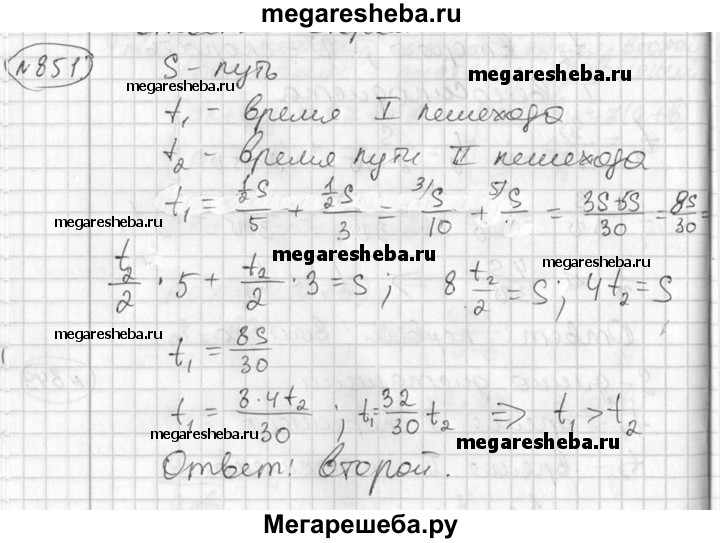 megaresheba.ru
№851
S - путь
megaresheba.ru megaresheba.ru
t₁ - время I пешехода
t₂ - время пути II пешехода
t₁ = (1/2 S)/5 + (1/2 S)/3 = ³⁾S/10 + ⁵⁾S/.. = (3S+5S)/30 = 8S/30 =
megaresheba.ru megaresheba.ru
t₂/2 · 5 + t₂/2 · 3 = S; 8 t₂/2 = S; 4t₂ = S
megaresheba.ru megaresheba.ru
t₁ = 8S/30
megaresheba.ru
t₁ = 8·4t₂/30; t₁ = 32/30 t₂ => t₁ > t₂
megaresheba.ru megaresheba.ru
Ответ: второй.
Мегарешеба.ру